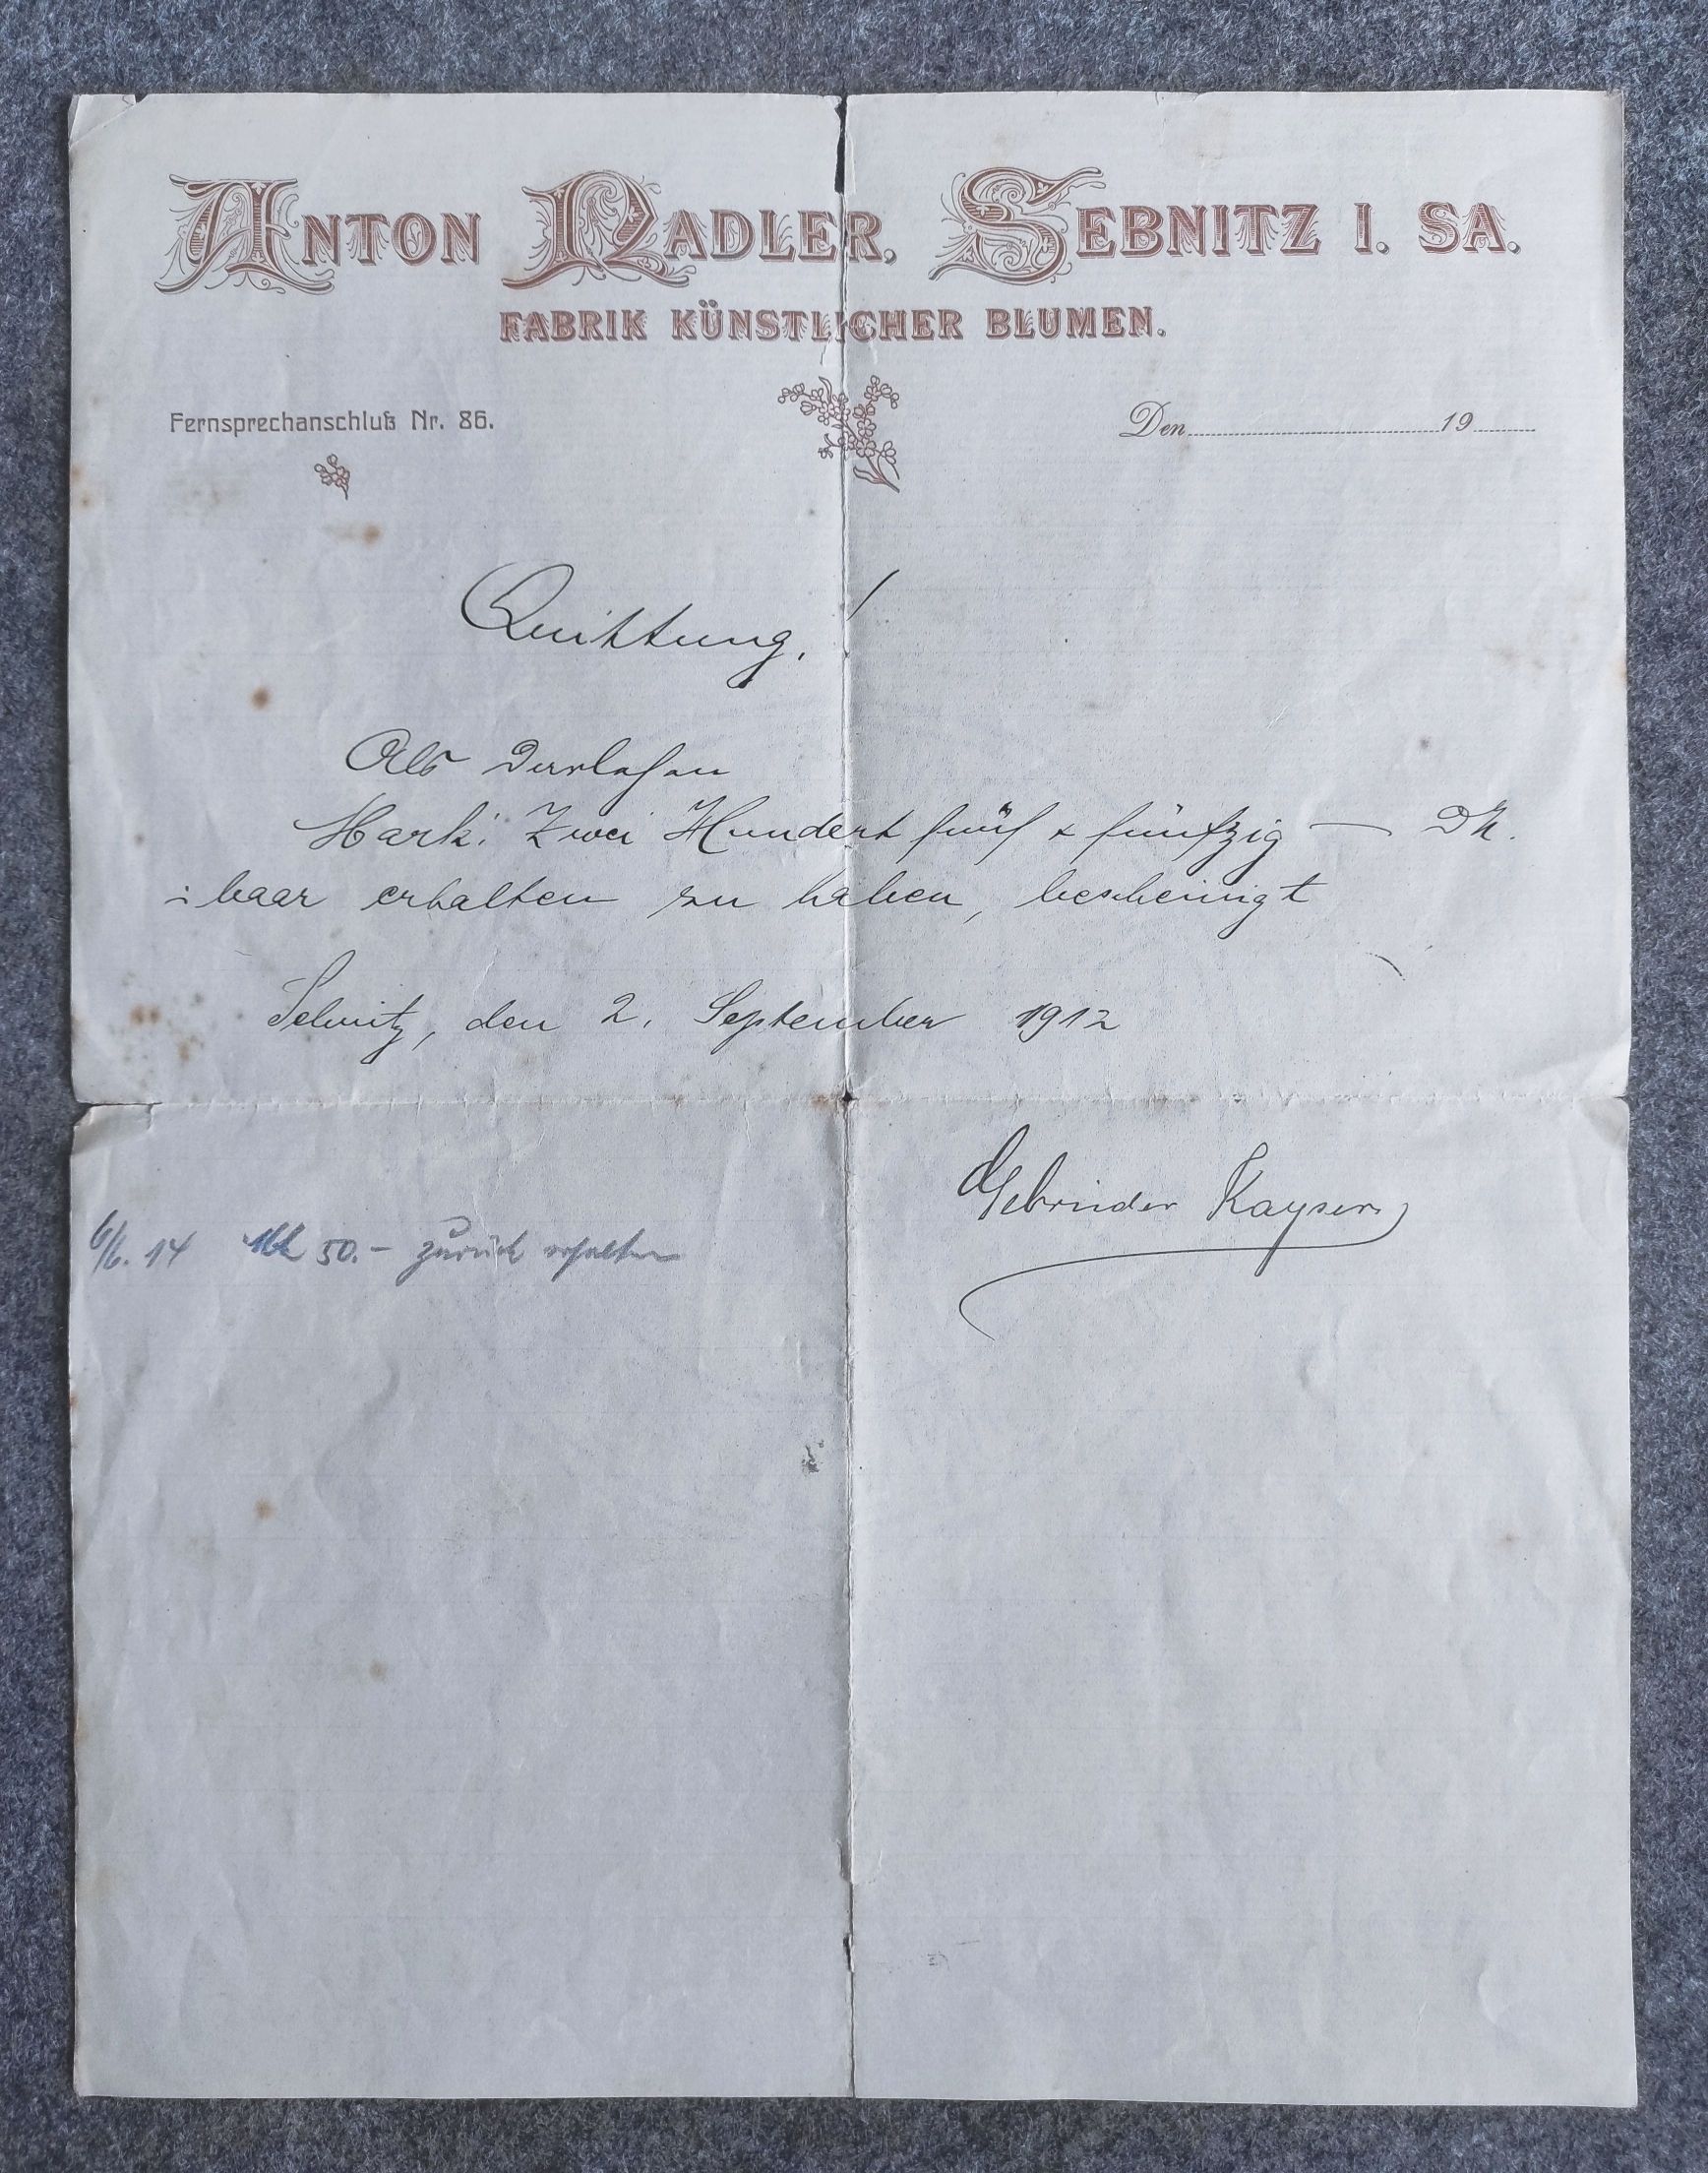 ANTON NADLER, SEBNITZ I. SA.
FABRIK KÜNSTLICHER BLUMEN.
Fernsprechanschluß Nr. 86.
Den 19
Quittung!
Als Darlehen
Mark: Zwei Hundert fünf & fünfzig — M.
baar erhalten zu haben, bescheinigt
Sebnitz, den 2. September 1912
Gebrüder Kayser
6/6. 14 M 50.- zurück erhalten